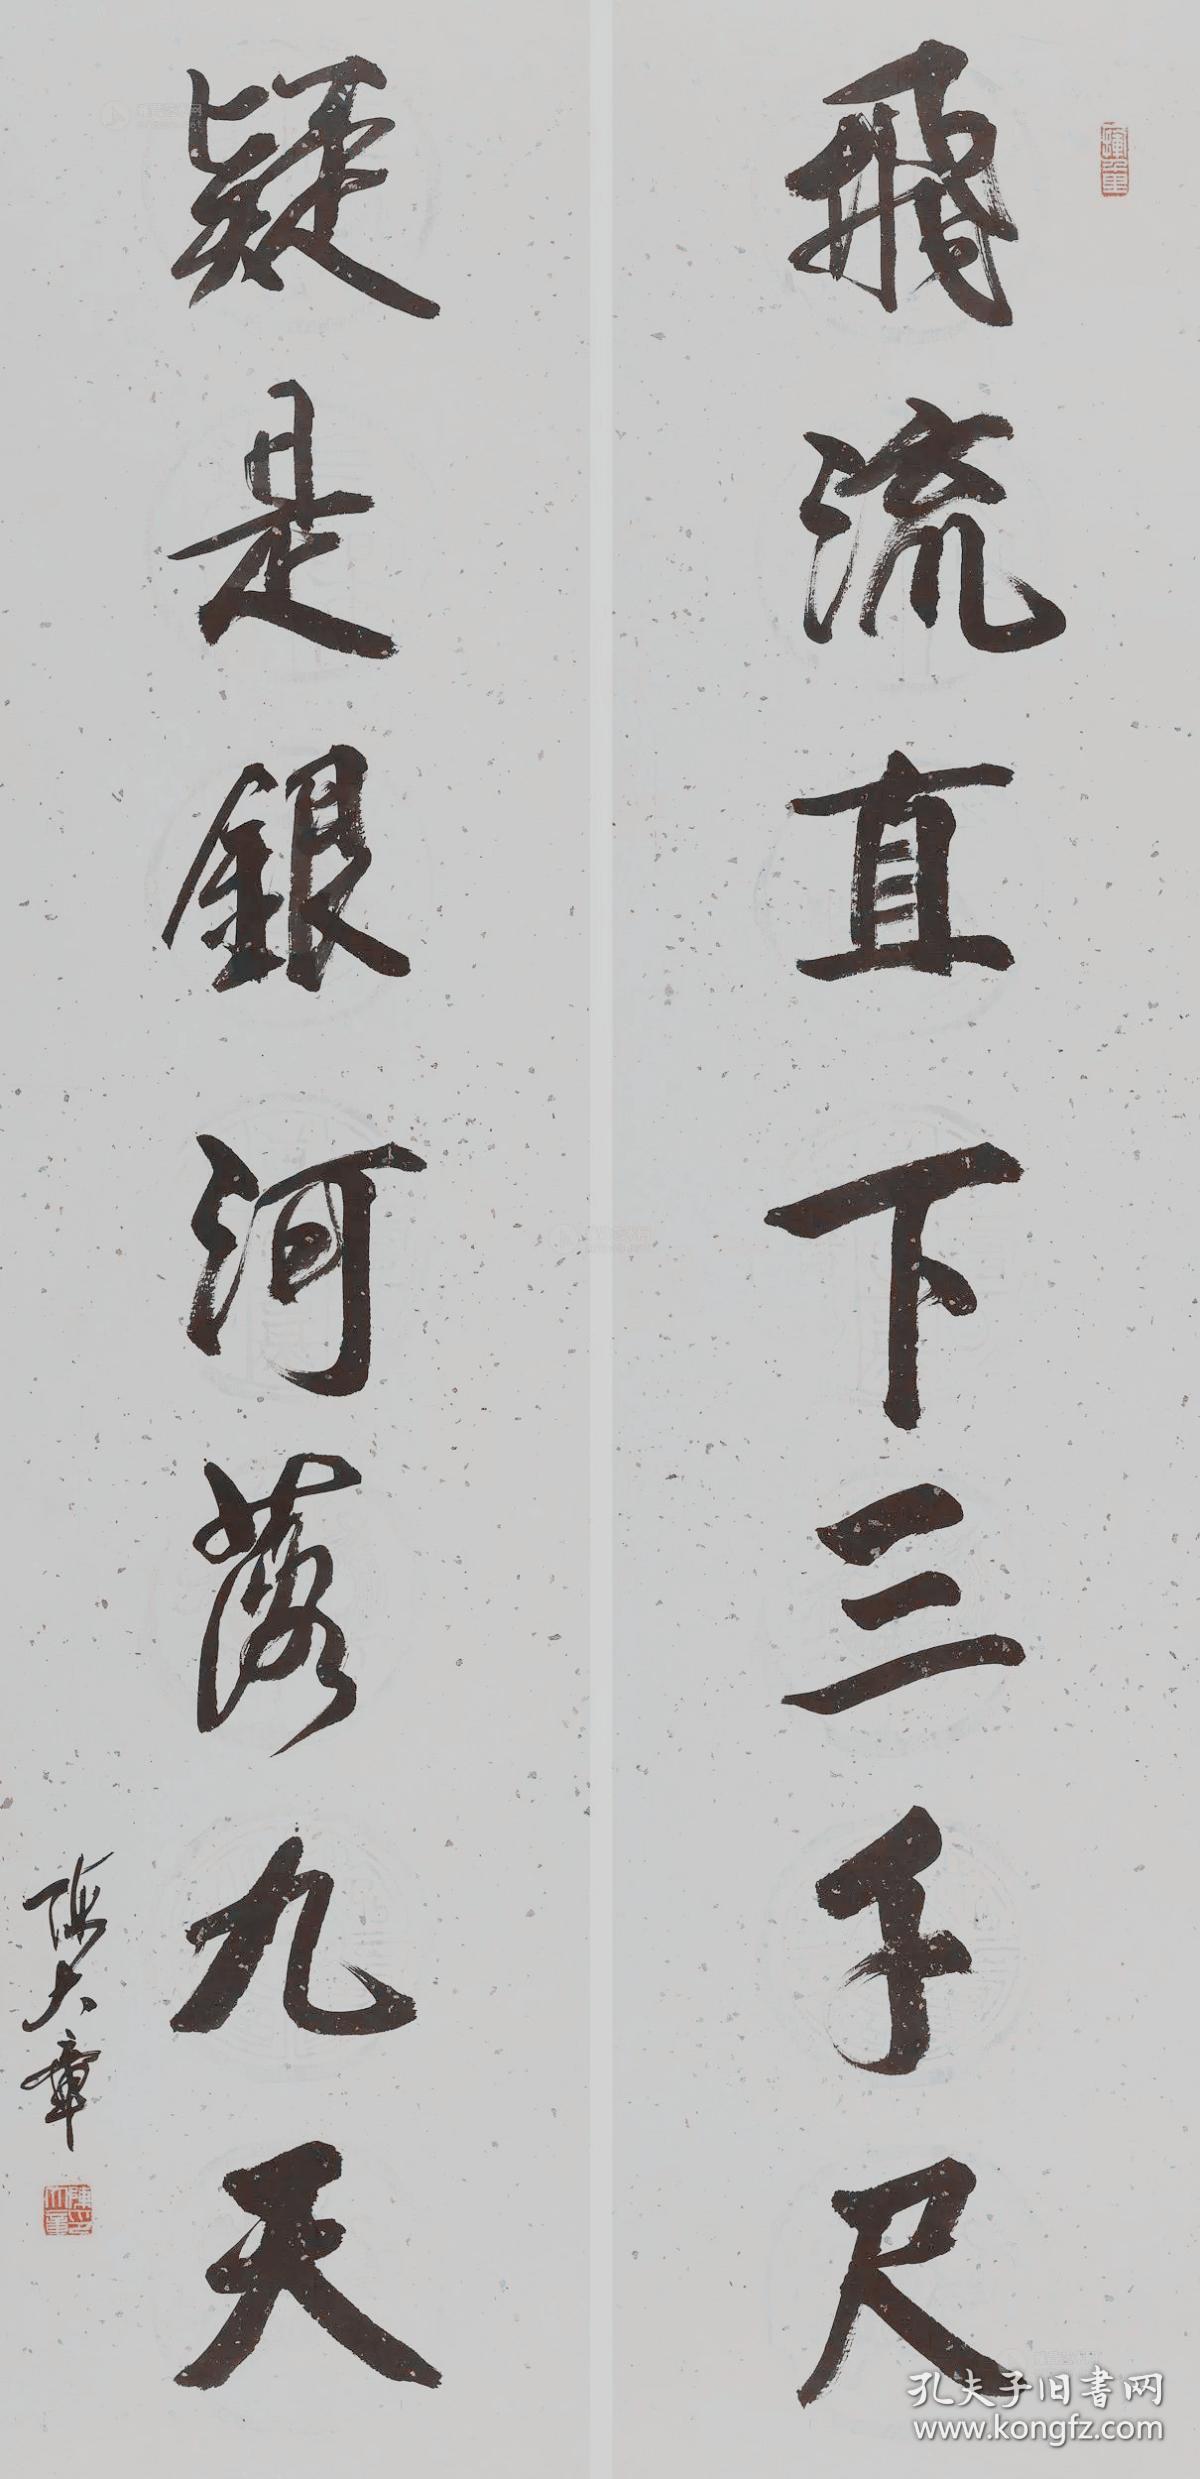 飛流直下三千尺
疑是銀河落九天
陳大章
孔夫子旧书网
www.kongfz.com